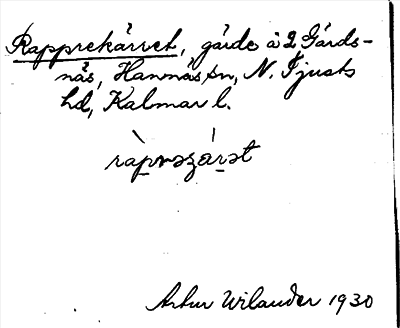 Rapprekärret, gärde å 2 Gärds-
näs, Hannäs sn, N. Tjusts
hd, Kalmar l.
Artur Wilander 1930